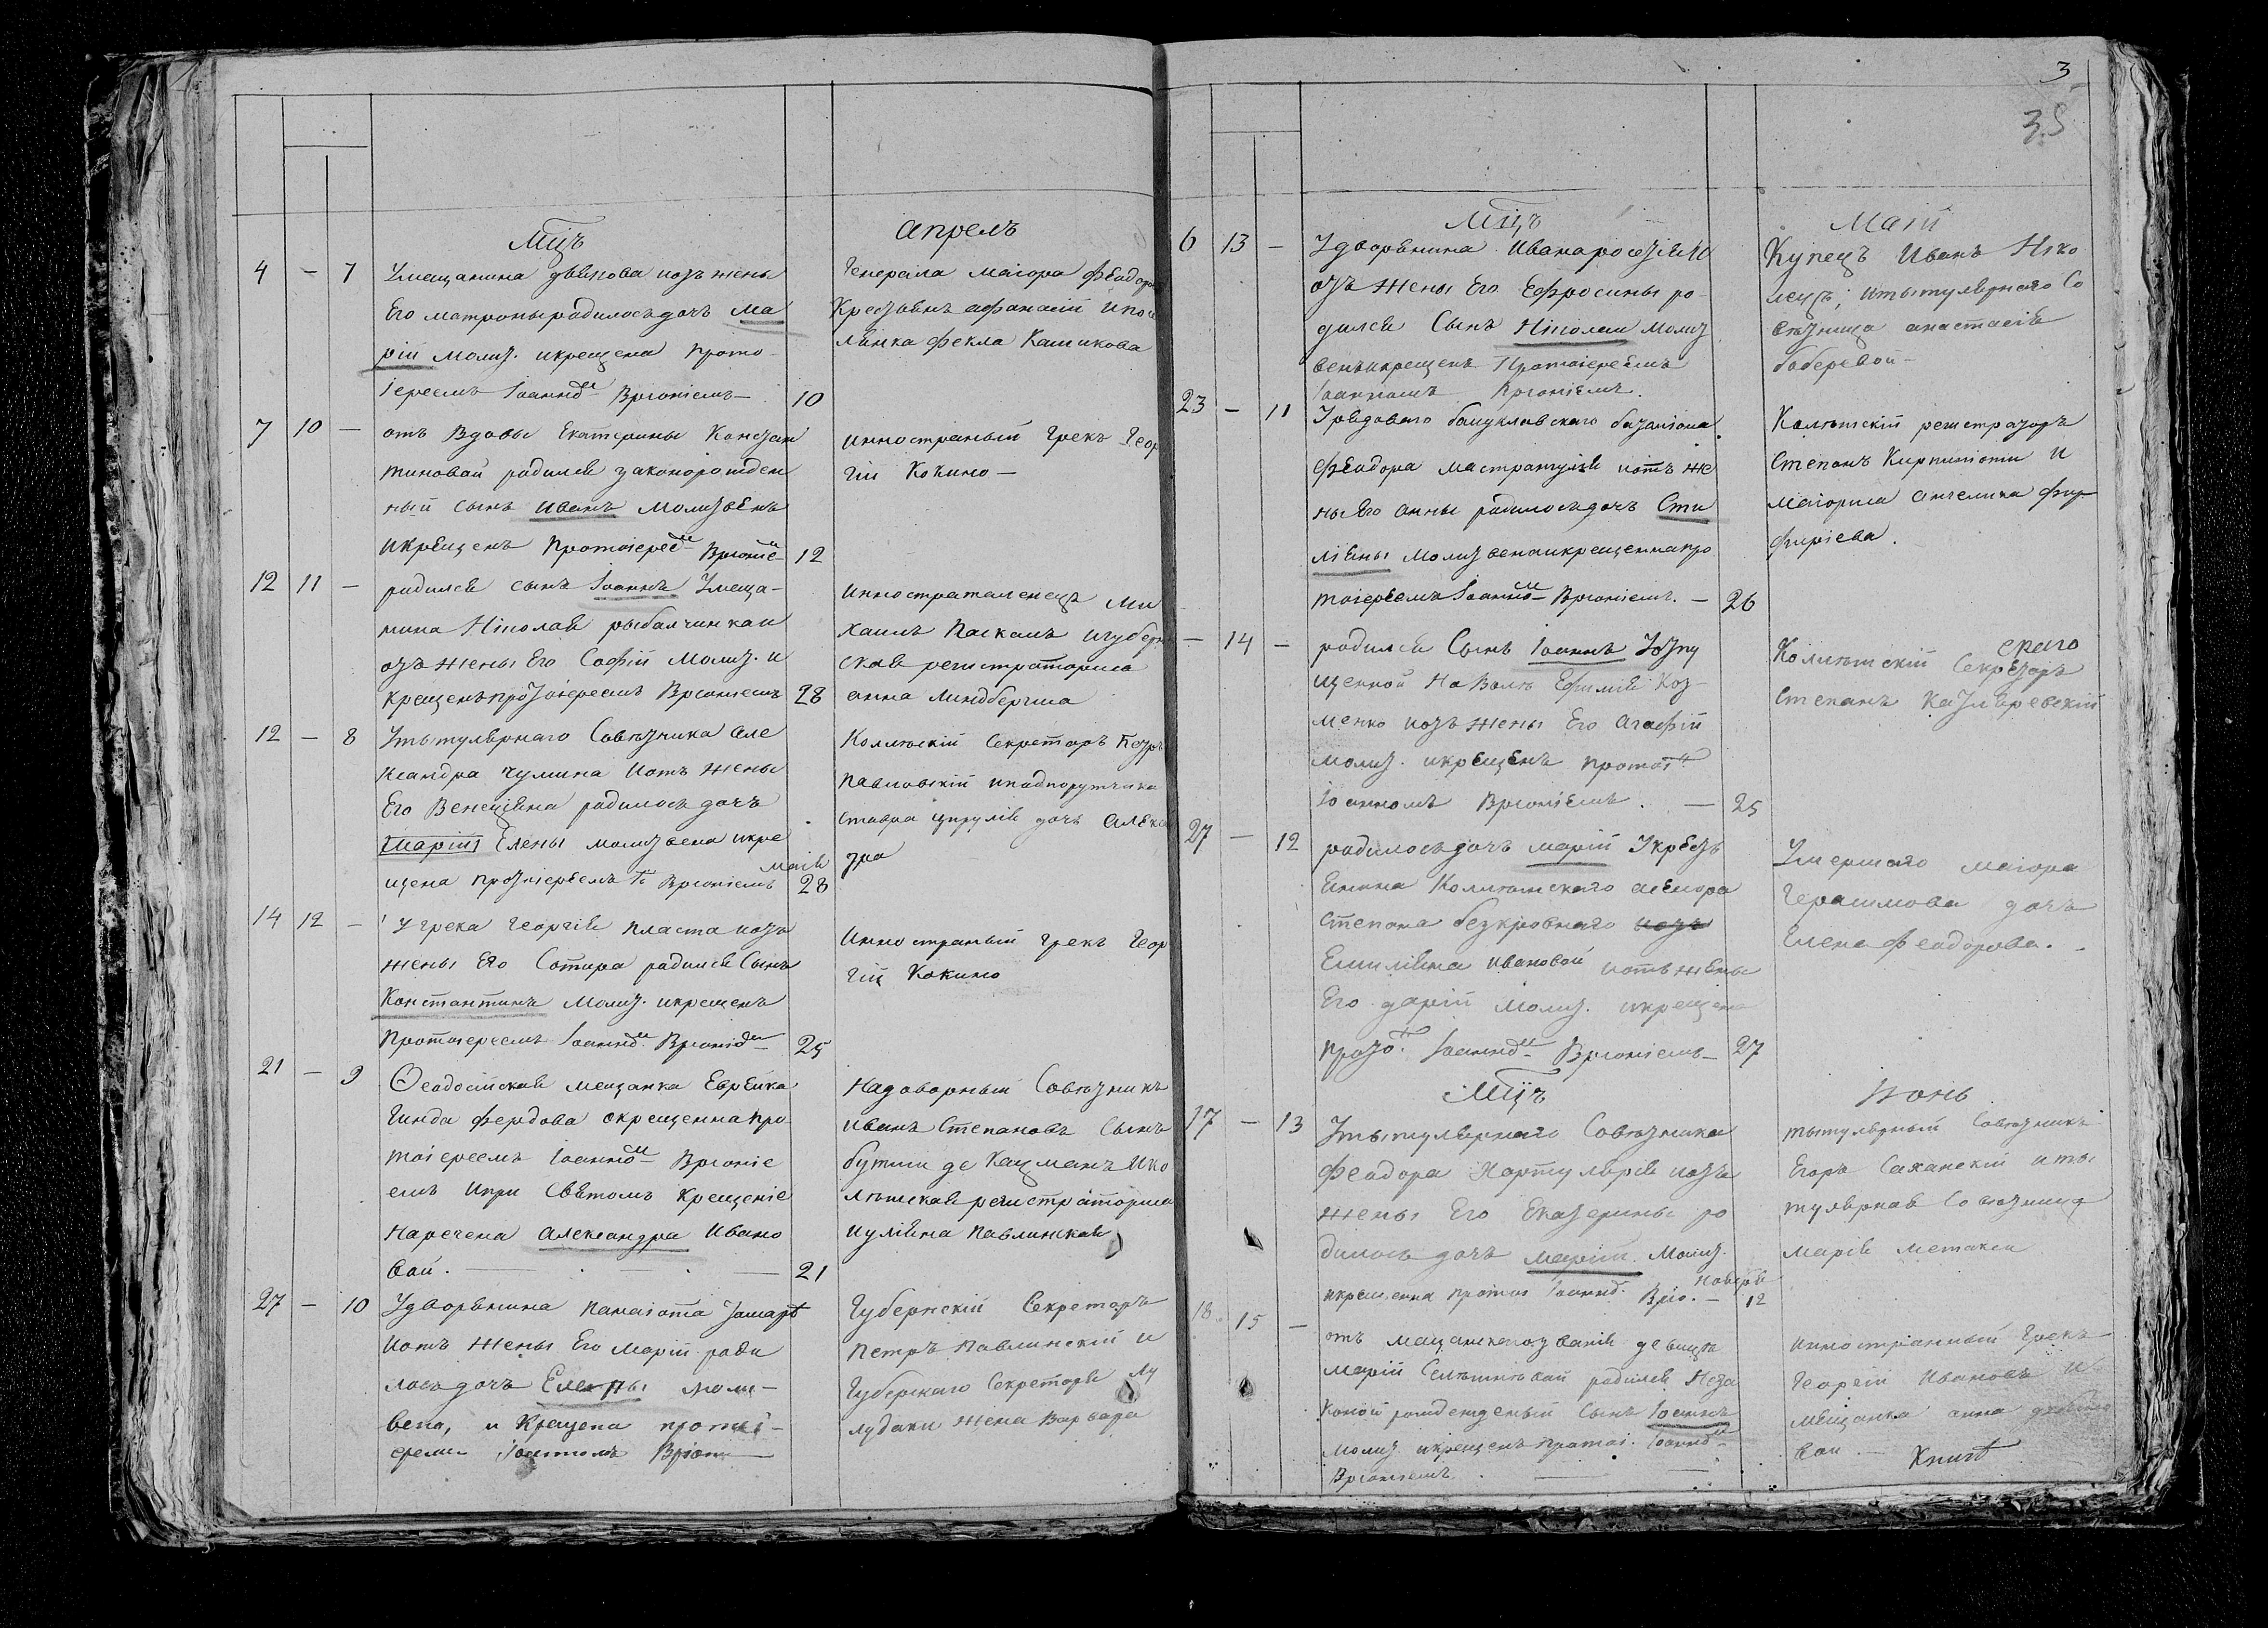 Мц҃ъ
апрель
4 – 7 Умещанина двѣкова иозъ жены
Его матроны родилось дочъ Ма
рій молит. икрещена прото-
іереемъ Іоанно^м Вріоніемъ – 10
Генерала маіора Феодора
афанасій
Фекла Кашикова
7 10 – отъ Вдовы Екатерины Констан
тиновой родился законорожден
ный сынъ Иванъ молитвенъ
икрещенъ протоіерео^м Вріоніе^м 12
инностраный грекъ Геор
гій Кокино –
12 11 – родился сынъ Іоаннъ Умеща-
нина Николая рыбалчинкаи
озъ жены Его Софій молит. и
крещенъ протоіереемъ Вріоніемъ 28
Ми
хаилъ Паскаль игуберн
ская регистраторша
анна Линдбергша
12 – 8 Утытулярнаго Совѣтника Але
ксандра Чумина иотъ жены
Его родилось дочъ
[Марій] Елены молитвена икре
щена протоіереемъ Іо Вріоніемъ
маія
28
Коллежскій Секретарь Петръ
Павловскій иподпорутчика
Ставра Цирулія дочъ Алекса
тра
14 12 – Угрека Георгія Пласта иозъ
жены Его Сотира родился Сынъ
Константинъ молит. икрещенъ
Протоіереемъ Іоанно^м Вріоніо^м 25
Инностраный грекъ Геор
гій Кокино
21 – 9 Ѳеодосійская мещанка Еврейка
Гинда Фердова окрещенна про
тоіереемъ Іоанно^м Вріоніе
емъ ипри Святомъ Крещеніе
наречена Александра Ивано
вой. – 21
Надоворный Совѣтникъ
Иванъ Степановъ Сынъ
де Кацманъ Ико
лѣжская регистраторша
Иуліяна Павлинская
27 – 10 Удворянина Панаіота
иотъ жены Его Марій роди
лось дочъ Елены моли-
вена, и Крещена протоі-
ереемъ Іоанномъ Вріон
Губернскій Секретарь
Петръ Павлинскій и
Губерскаго Секретаря Лу
лудаки жена Варвара
3
35
Мц҃ъ
Маій
6 13 – Удворянина Ивана
озъ жены Его Ефросины ро-
дился Сынъ Николаи молит
венъ икрещенъ Протоіереемъ
Іоанномъ Вріоніемъ.
Купецъ Иванъ Нико
итытулярнаго Со
вѣтница анастасія
боберевой –
23 – 11 Урядоваго балуклавского баталіона
Феодора Мастрапгулія иотъ же
ны Его анны родилось дочъ Сти
ліяны молитвена икрещенна про
тоіереемъ Іоанно^м Вріоніемъ. – 26
Колѣжскій регистраторъ
Степанъ Кирпиліоти и
маіорша ангелика Фир
фиріева.
– 14 – родился Сынъ Іоаннъ Уотпу
щенной на волѣ Ефимія Коз-
менко иозъ жены Его Агафій
молит. икрещенъ протоі
Іоанномъ Вріоніемъ. – 25
Колѣжскій Секретарь
Степанъ
27 – 12 родилось дочъ марій Укрестъ
янина Колѣжскаго асесора
Степана безкровнаго иозъ
Емиліяна ивановой иотъ жены
Его дарій молит. икрещена
прото. Іоанно^м Вріоніемъ – 27
Умершаго маіора
Герасимова дочъ
Елена Феодорова. –
Мц҃ъ
Июнь
17 – 13 Утытулярнаго Совѣтника
Феодора Хартулярія иозъ
жены Его Екатерины ро
дилось дочъ марій молит.
икрещенна протоі Іоанно. Вріо. –
ноября
12
тытулярный Совѣтникъ
Егоръ Саханскій иты
тулярная Совѣтница
Марія Метакси
18 15 – отъ мещанского званія девица
марій родился Неза
коной рожденденый сынъ Іоаннъ
молит. икрещенъ протоі. Іоанно^м
Вріоніемъ.
инностранный грекъ
Георгій Ивановъ и
мещанка анна
вой –
Книг